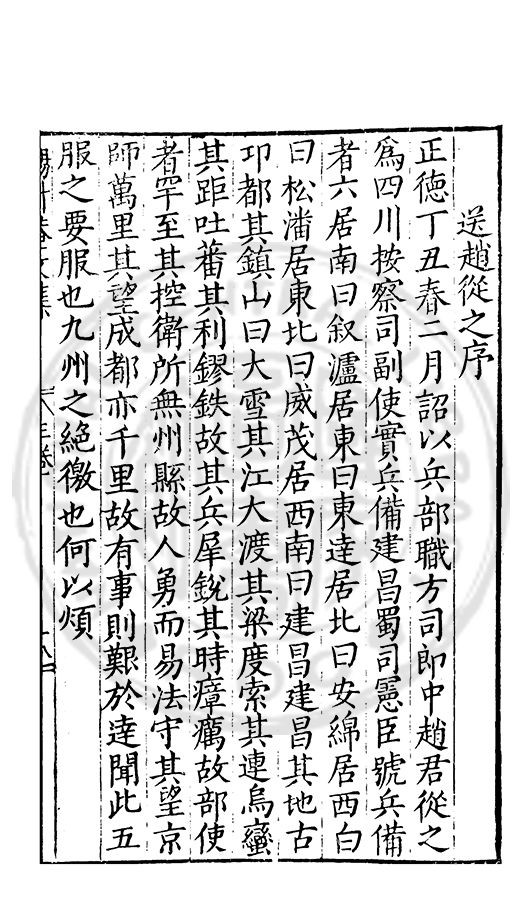 送趙從之序
正德丁丑春二月詔以兵部職方司郎中趙君從之
爲四川按察司副使實兵備建昌蜀司憲臣號兵備
者六居南曰叙瀘居東曰東逹居北曰安綿居西白
曰松潘居東北曰威茂居西南曰建昌建昌其地古
卭都其鎮山曰大雪其江大渡其梁度索其連烏蠻
其距吐蕃其利鏐鉄故其兵犀銳其時瘴癘故部使
者罕至其控衛所無州縣故人勇而易法守其望京
師萬里其望成都亦千里故有事則艱於逹聞此五
服之要服也九州之絶徼也何以煩